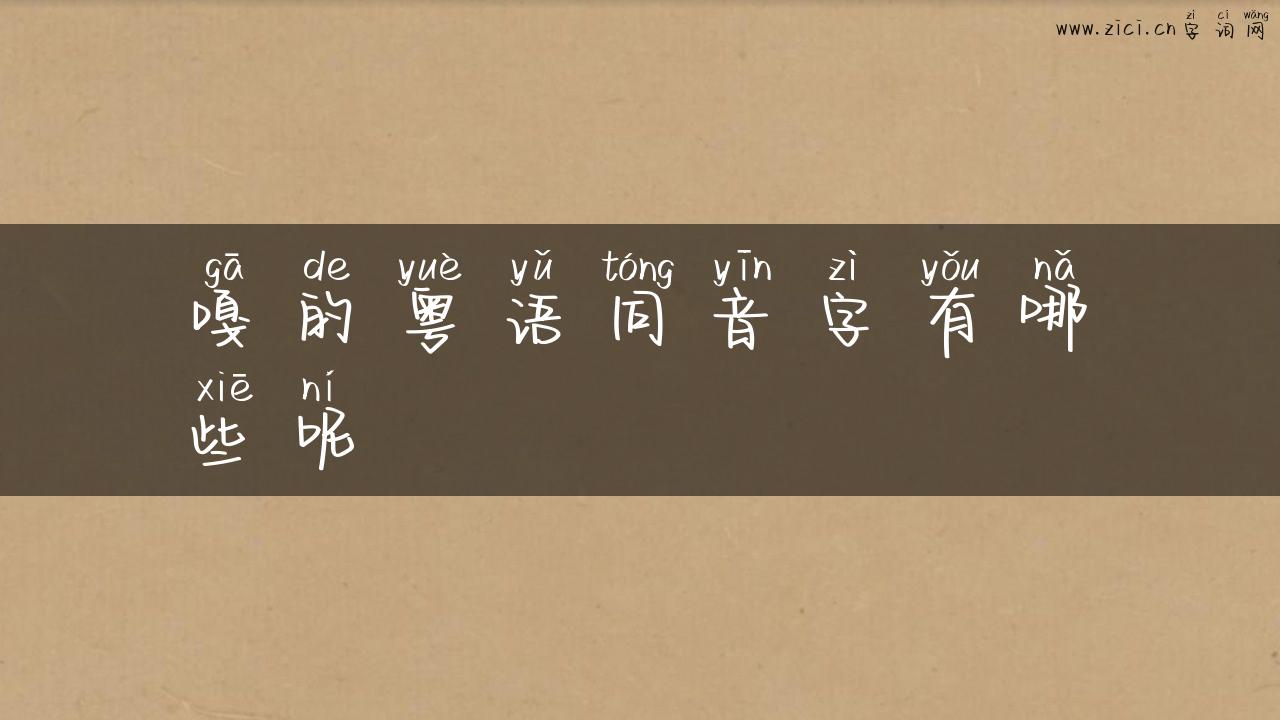 zì cí wǎng
www.zici.cn 字词网
gā de yuè yǔ tóng yīn zì yǒu nǎ
嘎的粤语同音字有哪
xiē ní
些呢